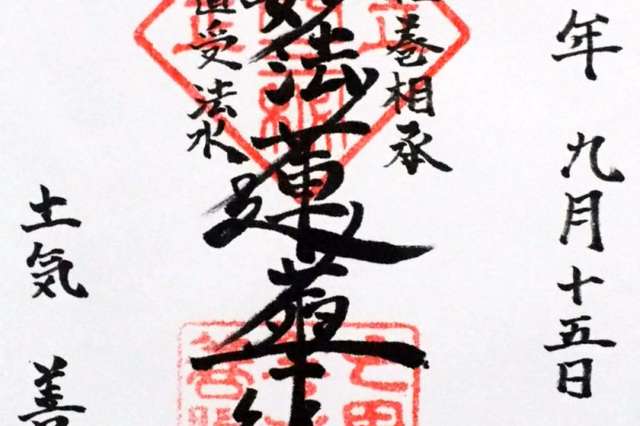 年 九月十五日
巻相承
妙法蓮華経
直受法水
土気 善